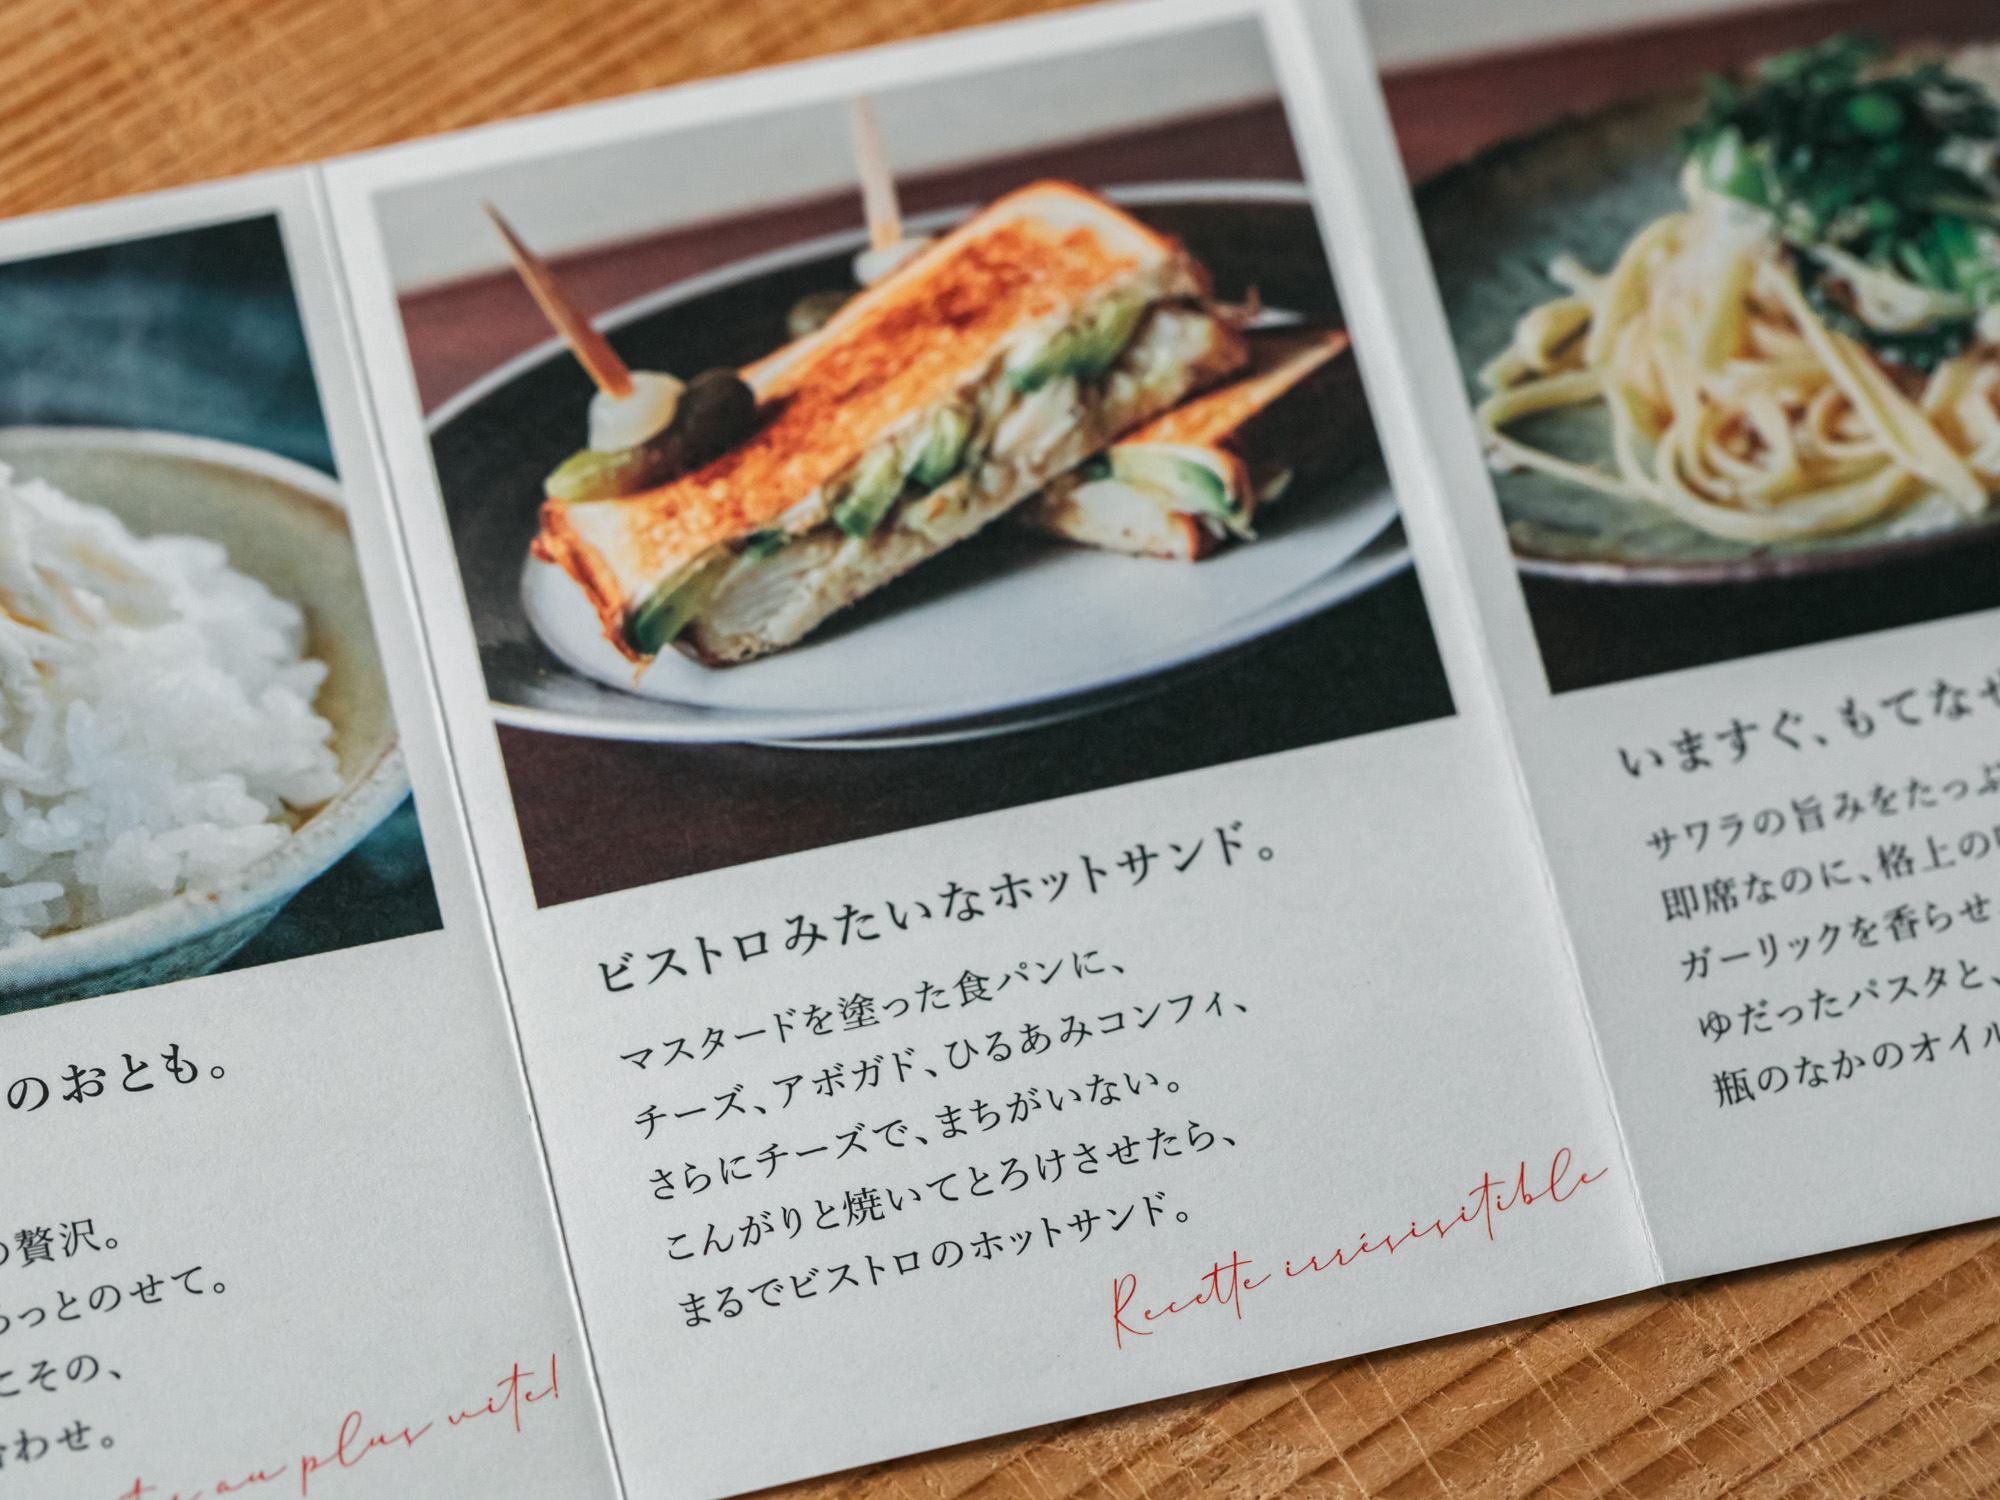 のおとも。
贅沢。
っとのせて。
こその、
わせ。
au plus vite!
ビストロみたいなホットサンド。
マスタードを塗った食パンに、
チーズ、アボガド、ひるあみコンフィ、
さらにチーズで、まちがいない。
こんがりと焼いてとろけさせたら、
まるでビストロのホットサンド。
Recette irrésisitible
いますぐ、もてなせ
サワラの旨みをたっぷ
即席なのに、格上の
ガーリックを香らせ
ゆだったパスタと、
瓶のなかのオイル